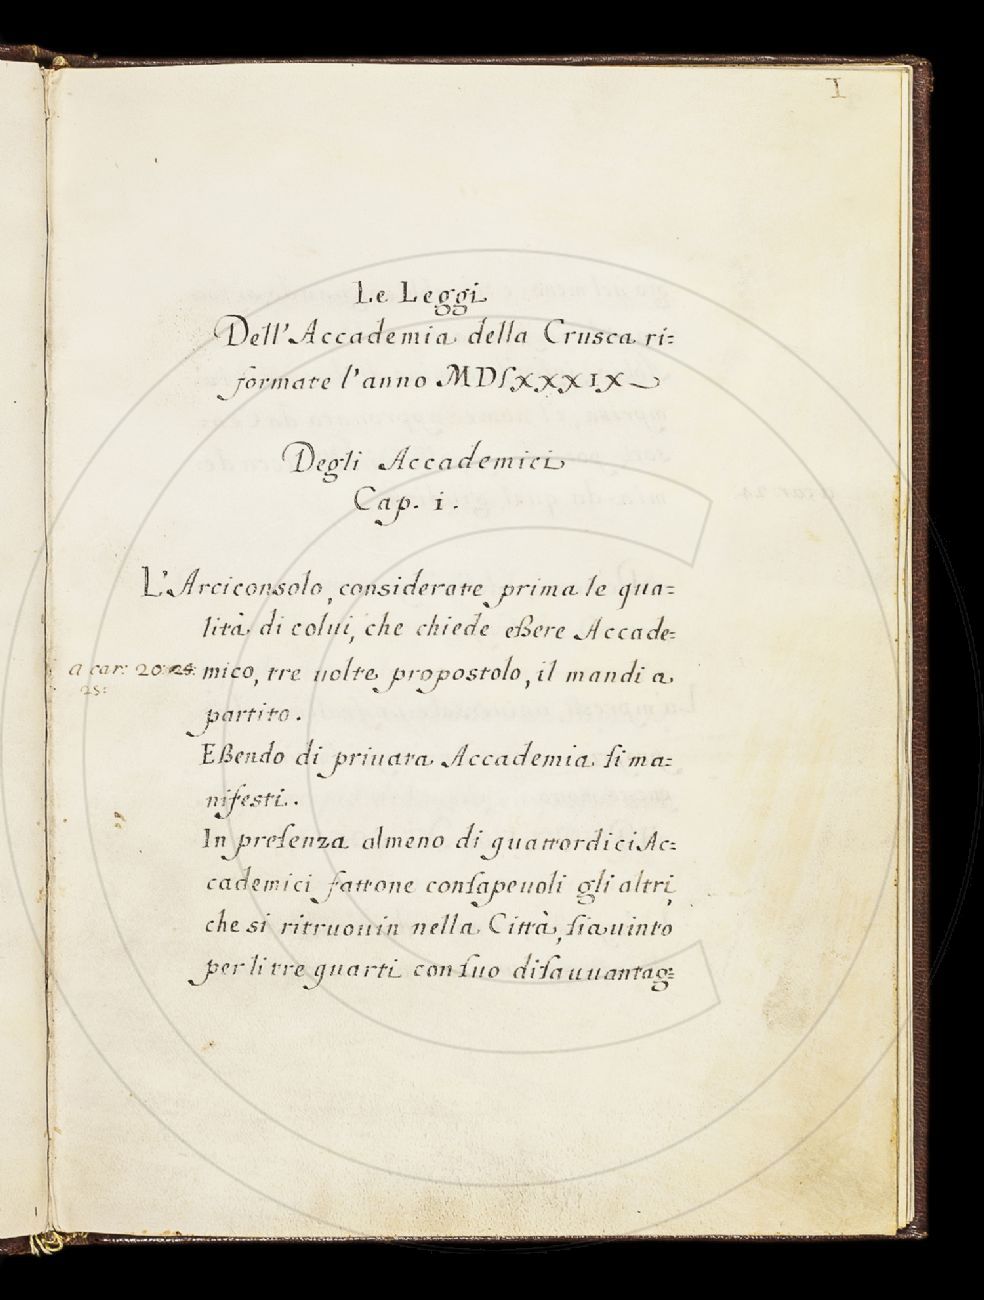 I
Le Leggi
Dell'Accademia della Crusca ri=
formate l'anno MDLXXXIX
Degli Accademici
Cap. i.
L'Arciconsolo, considerate prima le qua=
lità di colui, che chiede eßere Accade=
a car: 20: 25: mico, tre uolte propostolo, il mandi a
25:
partito.
Eßendo di priuata Accademia ſi ma=
nifesti.
In preſenza almeno di quattordici Ac=
cademici fattone conſapeuoli gli altri,
che si ritruouin nella Città, ſia uinto
per li tre quarti con ſuo diſauuantag=